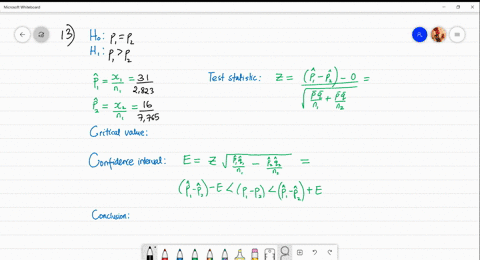 Microsoft Whiteboard
13) H₀: p₁ = p₂
H₁: p₁ > p₂
p̂₁ = x₁/n₁ = 31/2,823
Test statistic: z = (p̂₁ - p̂₂) - 0 / √(p̄q̄/n₁ + p̄q̄/n₂) =
p̂₂ = x₂/n₂ = 16/7,765
Critical value:
Confidence interval: E = z √(p̂₁q̂₁/n₁ - p̂₂q̂₂/n₂) =
(p̂₁-p̂₂) - E < (p₁-p₂) < (p̂₁-p̂₂) + E
Conclusion: